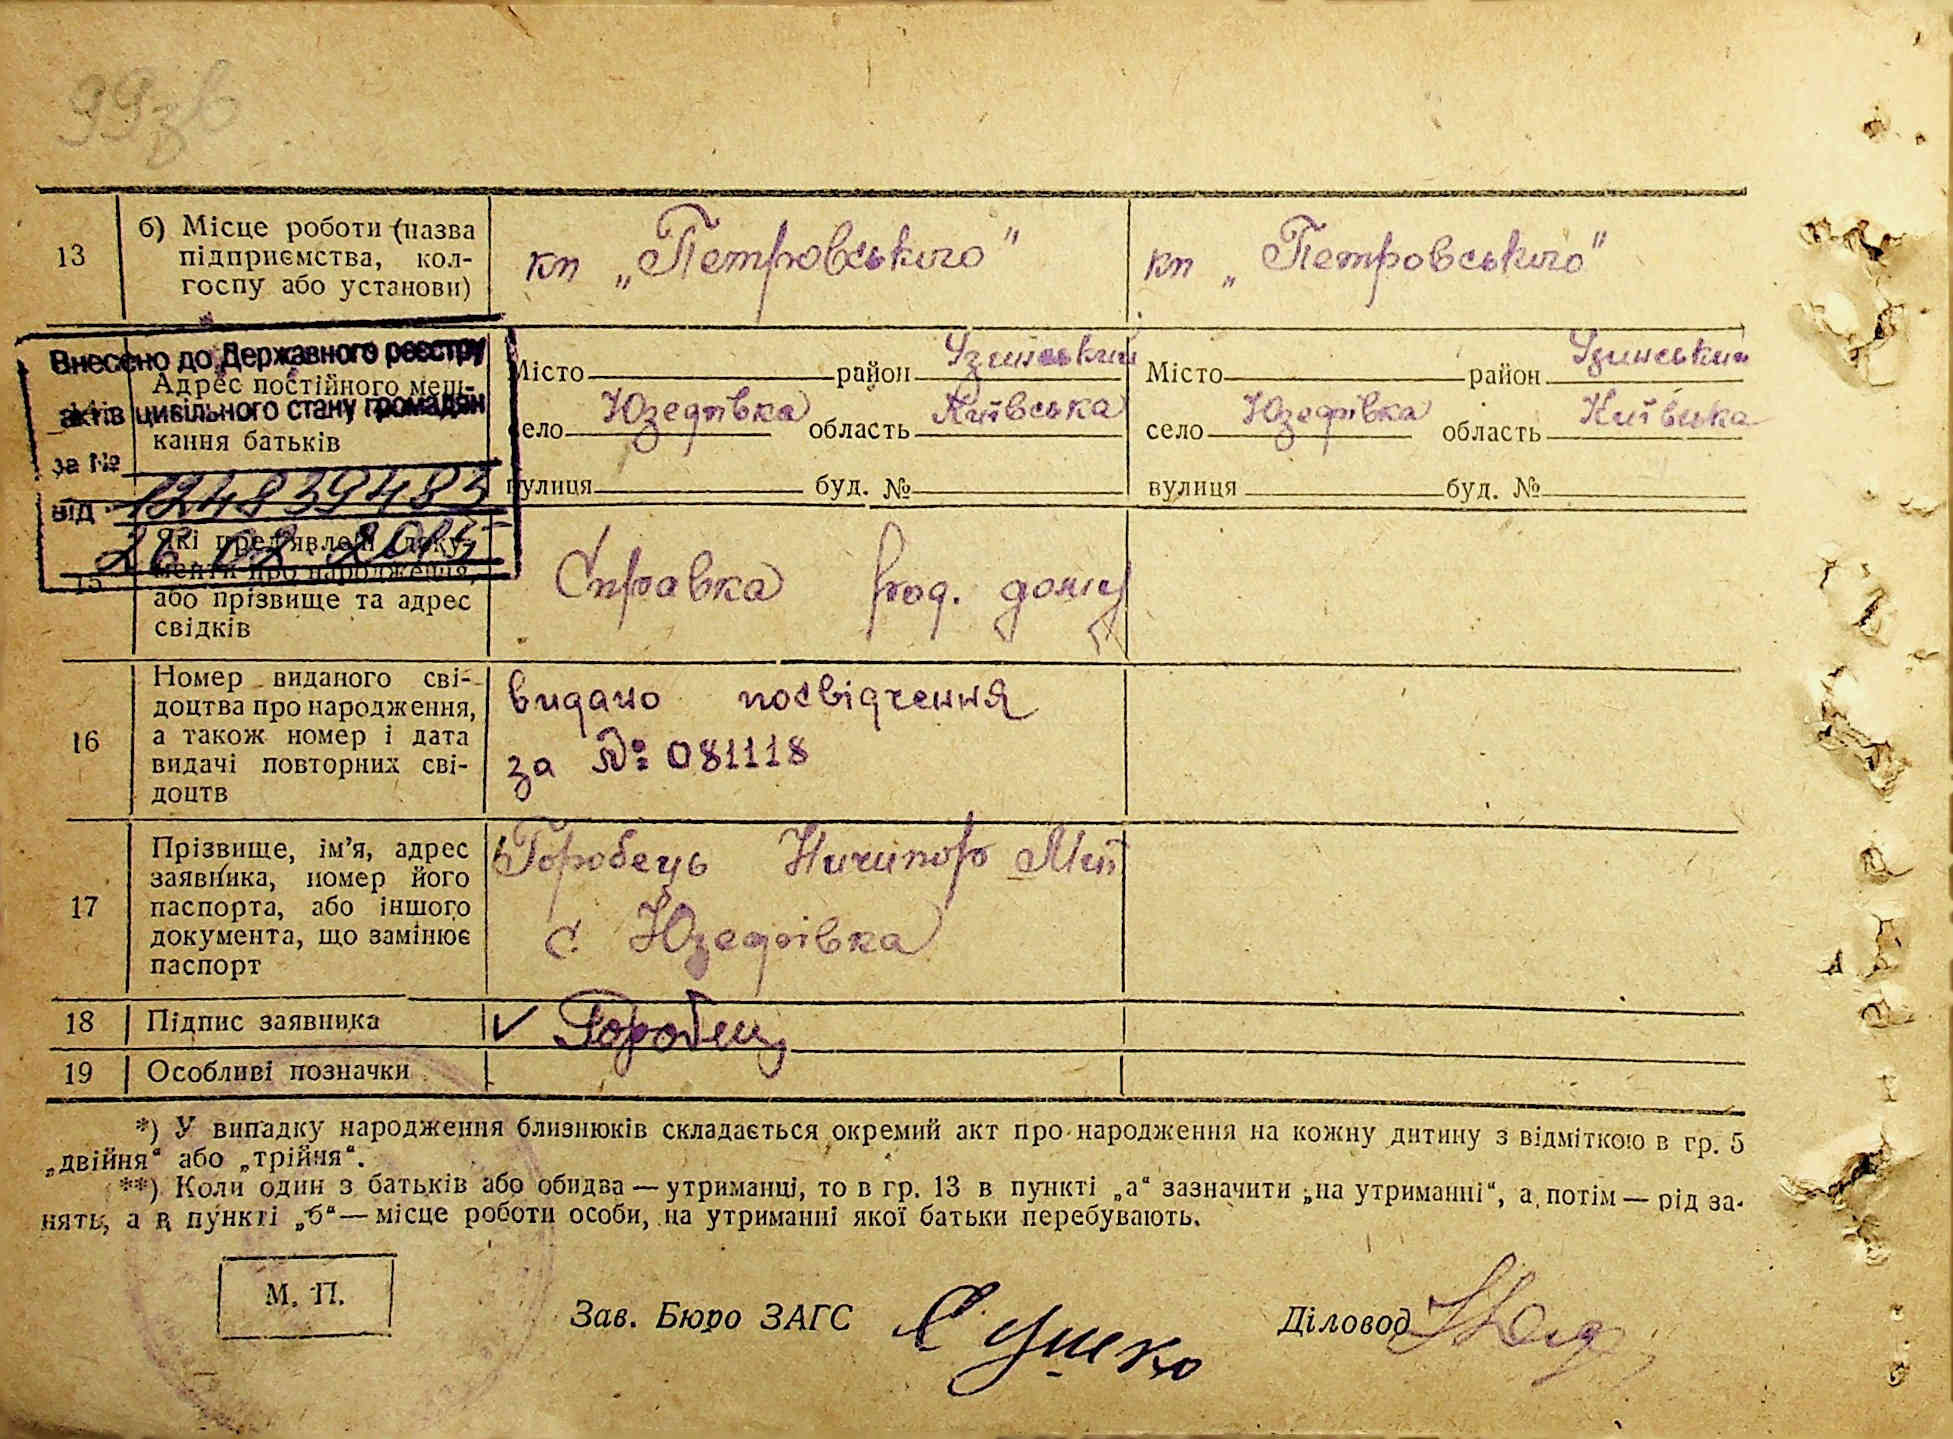 99зв
13
б) Місце роботи (назва
підприємства, кол-
госпу або установи)
кп „Петровського"
кп „Петровського"
Внесено до Державного реєстру
Адрес постійного меш-
актів цивільного стану громадян
кання батьків
за №
124839483
від
26 02 2015
Місто район Узинський
село Юзефівка область Київська
вулиця буд. №
Місто район Узинський
село Юзефівка область Київська
вулиця буд. №
15
які пред'явлені доку-
менти про народження,
або прізвище та адрес
свідків
Справка род. дому
16
Номер виданого сві-
доцтва про народження,
а також номер і дата
видачі повторних сві-
доцтв
видано посвідчення
за №: 081118
17
Прізвище, ім'я, адрес
заявника, номер його
паспорта, або іншого
документа, що замінює
паспорт
Горобець Ничипор
с. Юзефівка
18
Підпис заявника
Горобец
19
Особливі позначки
*) У випадку народження близнюків складається окремий акт про народження на кожну дитину з відміткою в гр. 5
„двійня" або „трійня".
**) Коли один з батьків або обидва — утриманці, то в гр. 13 в пункті „а" зазначити „на утриманні", а потім — рід за-
нять, а в пункті „б" — місце роботи особи, на утриманні якої батьки перебувають.
М. П.
Зав. Бюро ЗАГС
Діловод